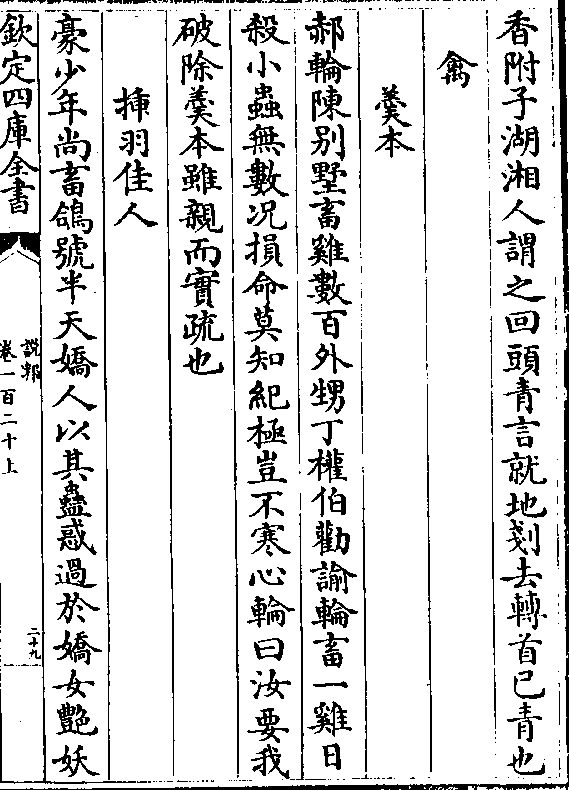 香附子湖湘人謂之回頭青言就地剗去轉首已青也
禽
羮本
郝輪陳别墅畜雞數百外甥丁權伯勸諭輪畜一雞日
殺小蟲無數况損命莫知紀極豈不寒心輪曰汝要我
破除羮本雖親而實疏也
揷羽佳人
豪少年尚畜鴿號半天嬌人以其蠱惑過於嬌女艶妖
欽定四庫全書
説郛
卷一百二十上
二十九